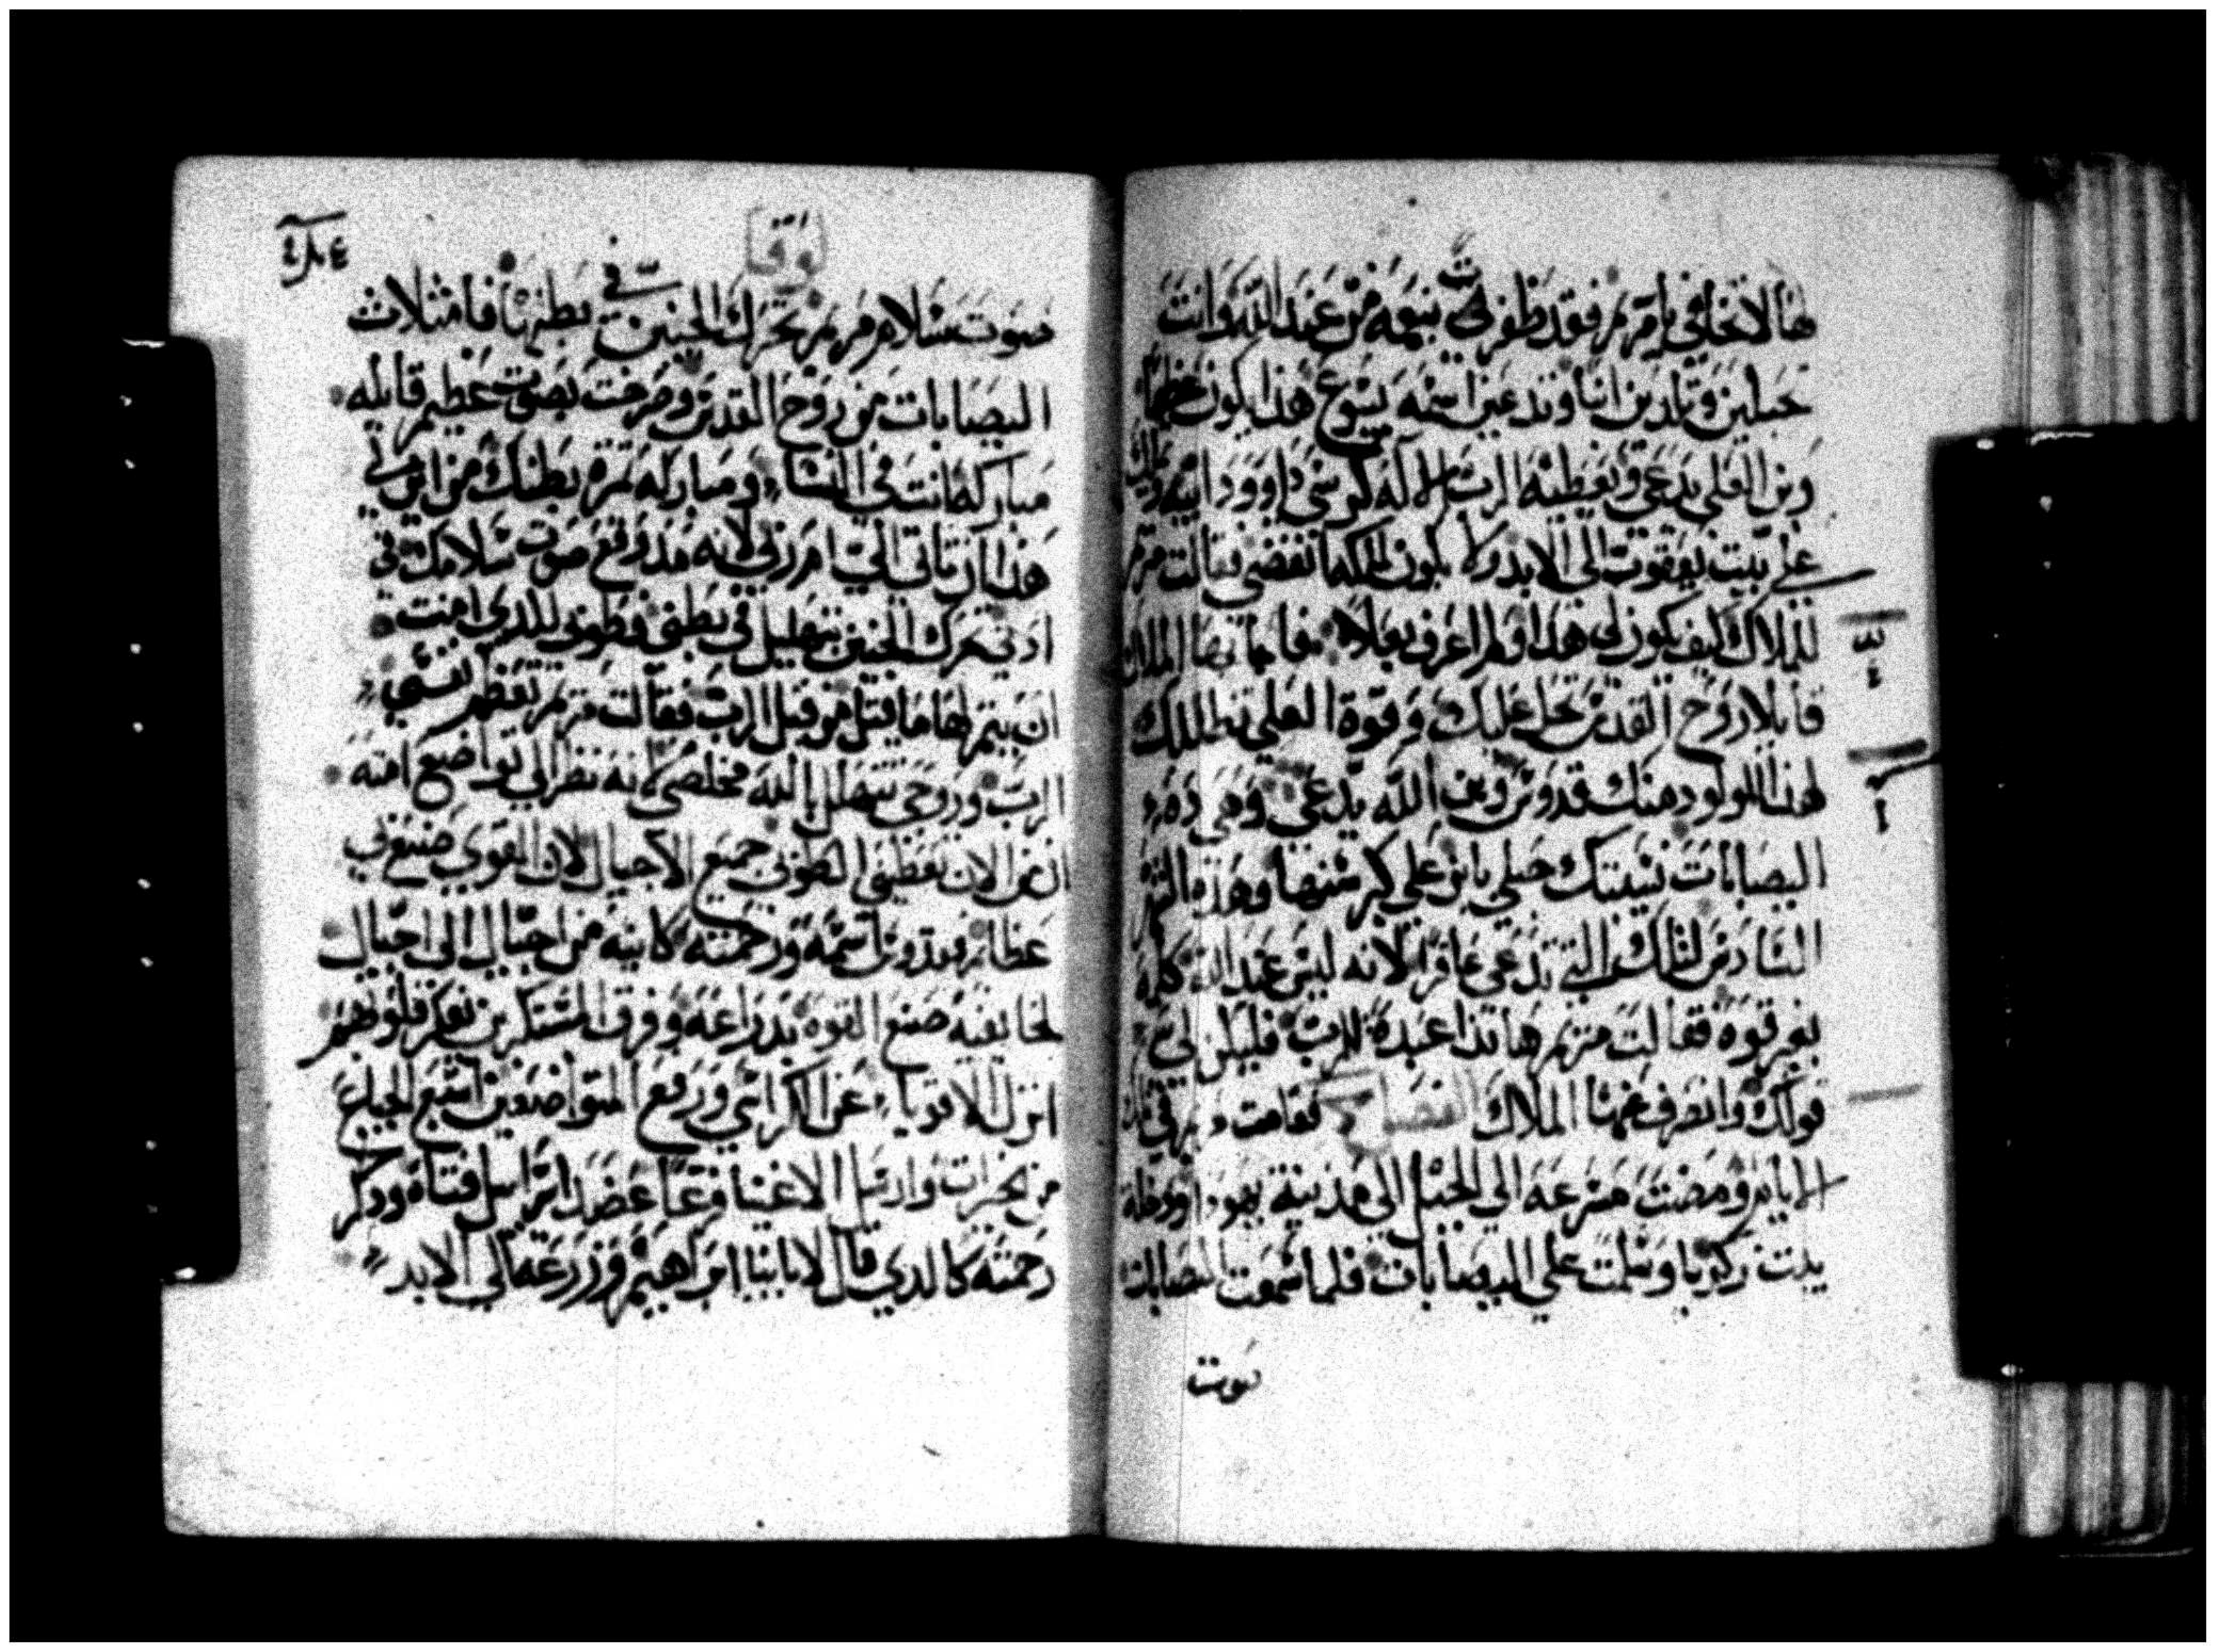 ها لا تخافي يا مريم فقد ظفرتي بنعمه من عند الله وانت
حبلين وتلدين ابنا وتدعين اسمه يسوع هذا يكون عظيما
وبن العلي يدعي ويعطيه الرب الاله كرسي داوود ابيه ويملك
علي بيت يعقوب الي الابد ولا يكون لملكه انقضي فقالت مريم
للملاك كيف يكون لي هذا ولم اعرف بعلا فاجابها الملاك
قايلا روح القدس تحل عليك وقوة العلي تظللك
لهذا المولود منك قدوس وبن الله يدعي وهي ده
اليصابات نسيبتك حبلي بابن علي كبر سنها وهذه الشهر
السادس لتلك التي تدعي عاقرا لانه ليس عند الله كلمه
بغير قوه فقالت مريم ها نذا عبدة للرب فليكن لي
قولك وانصرف عنها الملاك الفصل فقامت مريم في تلك
الايام ومضت مسرعه الي الجبل الي مدينة يهودا ودخلت
بيت زكريا وسلمت علي اليصابات فلما سمعت اليصابات
صوت
لوقا
صوت سلام مريم تحرك الجنين في بطنها فامتلات
اليصابات من روح القدس وصرخت بصوت عظيم قايله
مباركه انت في النسا ومباركه ثمرة بطنك من اين لي
هذا ان تاتي الي ام ربي لانه مذ وقع صوت سلامك في
ادني تحرك الجنين بتهليل في بطني فطوبي للذي امنت
ان يتم لها ما قيل من قبل الرب فقالت مريم تعظم نفسي
الرب وروحي تتهلل بالله مخلصي لانه نظر الي تواضع امته
ان من الان تعطيني الطوبي جميع الاجيال لان القوي صنع بي
عظائم قدوس اسمه ورحمته كاينه من اجيال الي اجيال
لخائفيه صنع القوه بدراعه وفرق المستكبرين بفكر قلوبهم
انزل الاقويا عن الكراسي ورفع المتواضعين اشبع الجياع
من خيرات وارسل الاغنيا فرغا عضد اسراييل فتاه ودكر
رحمته كالدي قال لابائنا ابراهيم وزرعه الي الابد